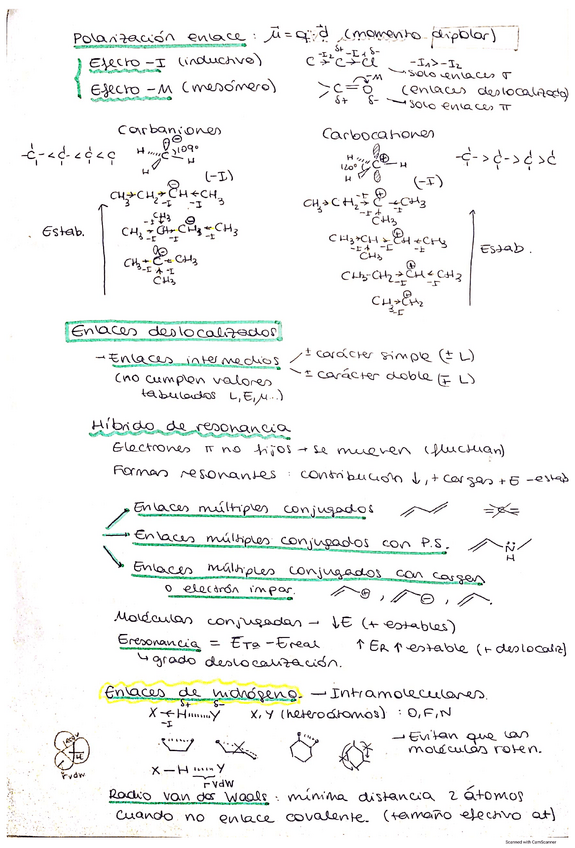 Polarización enlace: μ⃗ = q·d⃗ (momento dipolar)
Efecto -I (inductivo) C →-I₂ Cδ+ →-I₁ Clδ- -I₁ > -I₂
Solo enlaces σ
Efecto -M (mesómero) C=O -M δ+ δ- (enlaces deslocalizados)
solo enlaces π
Carbaniones Carbocationes
-C- < C < C < C H H H 109º ⊖ H H H 120º ⊕ -C- > C > C > C
(-I) (-I)
CH₃→CH₂→CH←CH₃ ⊖ -I -I CH₃→CH₂→C←CH₃ ⊕ -I -I CH₃
Estab. CH₃ -I CH₃→CH→CH₂←CH₃ ⊖ -I -I CH₃→CH→CH←CH₃ ⊕ -I -I CH₃ Estab.
CH₃→C←CH₃ ⊖ -I -I CH₃ CH₃-CH₂→CH←CH₃ ⊕
CH₃→CH₂ ⊕ -I
Enlaces deslocalizados
→ Enlaces intermedios ± carácter simple (± L)
± carácter doble (∓ L)
(no cumplen valores
tabulados L, E, μ...)
Híbrido de resonancia
Electrones π no fijos → se mueven (fluctúan)
Formas resonantes: contribución ↓, + cargas + E - estab
Enlaces múltiples conjugados
Enlaces múltiples conjugados con P.S. N H
Enlaces múltiples conjugados con cargas
o electrón impar. ⊕ , ⊖ , .
Moléculas conjugadas → ↓E (+ estables)
Eresonancia = ETQ - Ereal ↑ER ↑estable (+ deslocaliz)
↳ grado deslocalización.
Enlaces de hidrógeno. — Intramoleculares.
X ← H δ+ ······ Y δ- -I X, Y (heteroátomos): O, F, N
→ Evitan que las
moléculas roten.
rvdw
X — H ······ Y
rvdW
Radio van der Waals: mínima distancia 2 átomos
cuando no enlace covalente. (tamaño efectivo at)
Scanned with CamScanner